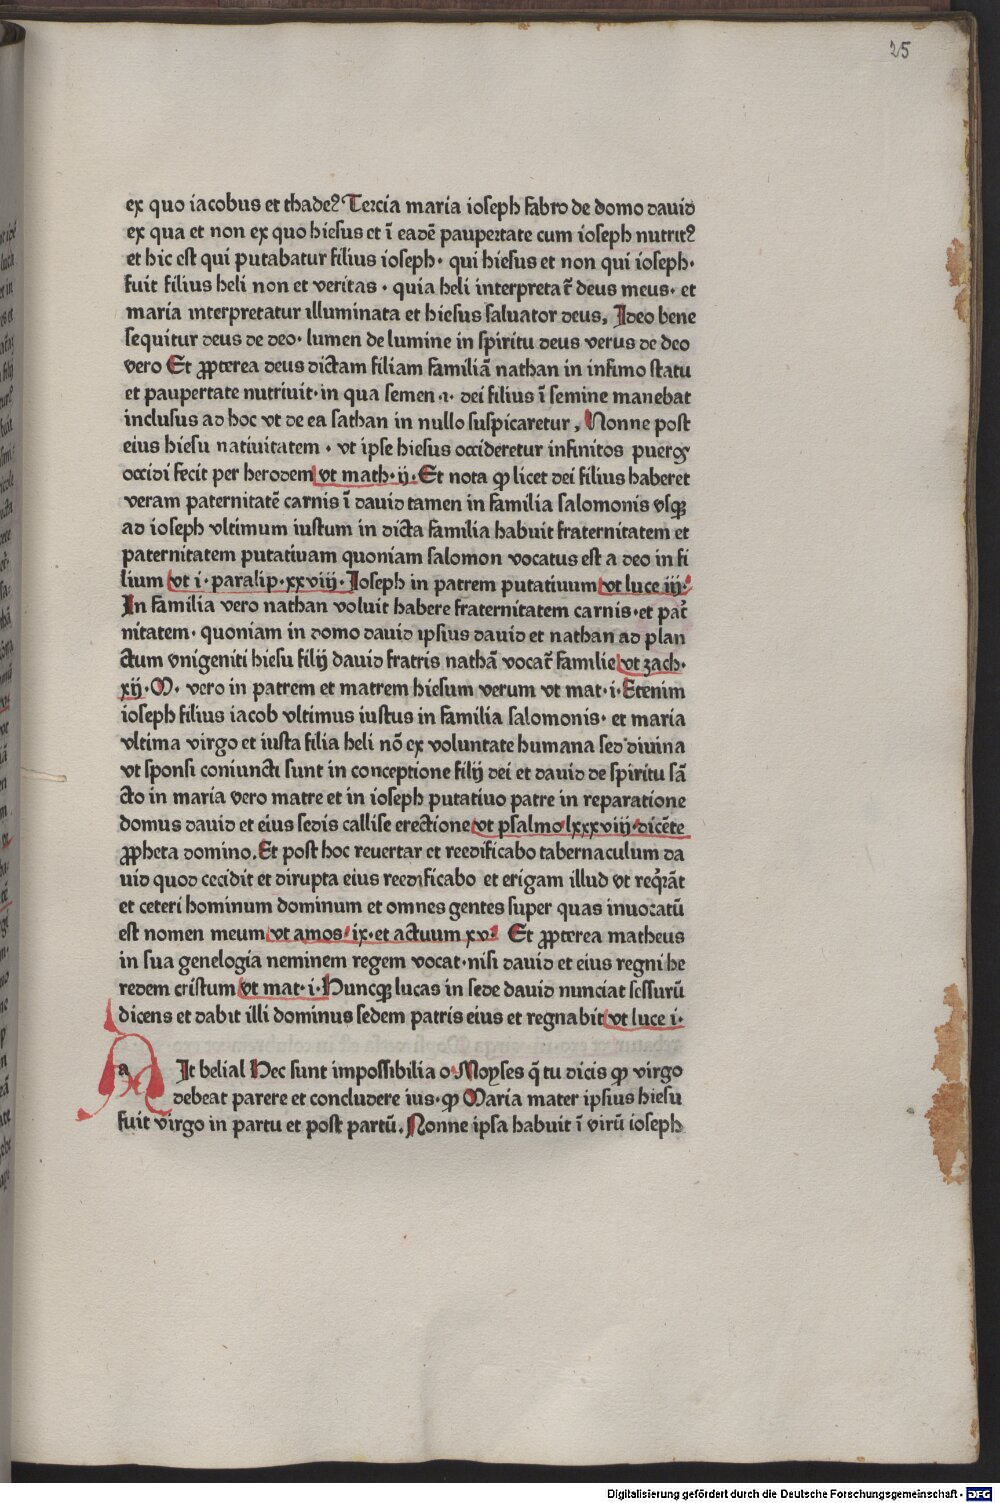 25
ex quo iacobus et thadeꝰ Tercia maria ioseph fabro de domo dauid
ex qua et non ex quo hiesus et ī eadē paupertate cum ioseph nutritꝰ
et hic est qui putabatur filius ioseph· qui hiesus et non qui ioseph·
fuit filius heli non et veritas · quia heli interpretat̄ deus meus· et
maria interpretatur illuminata et hiesus saluator deus, Ideo bene
sequitur deus de deo· lumen de lumine in spiritu deus verus de deo
vero Et ꝓpterea deus dictam filiam familiā nathan in infimo statu
et paupertate nutriuit· in qua semen ·i· dei filius ī semine manebat
inclusus ad hoc vt de ea sathan in nullo suspicaretur, Nonne post
eius hiesu natiuitatem · vt ipse hiesus occideretur infinitos pueros
occidi fecit per herodem vt math· ij· Et nota ꝙ licet dei filius haberet
veram paternitatē carnis ī dauid tamen in familia salomonis vsqꝫ
ad ioseph vltimum iustum in dicta familia habuit fraternitatem et
paternitatem putatiuam quoniam salomon vocatus est a deo in fi
lium vt i· paralip· xxviij· Ioseph in patrem putatiuum vt luce iij·
In familia vero nathan voluit habere fraternitatem carnis· et pat̄
nitatem· quoniam in domo dauid ipsius dauid et nathan ad plan
ctum vnigeniti hiesu filij dauid fratris nathā vocat̄ familie vt zach·
xij· M· vero in patrem et matrem hiesum verum vt mat· i· Etenim
ioseph filius iacob vltimus iustus in familia salomonis· et maria
vltima virgo et iusta filia heli nō ex voluntate humana sed diuina
vt sponsi coniuncti sunt in conceptione filij dei et dauid de spiritu sā
cto in maria vero matre et in ioseph putatiuo patre in reparatione
domus dauid et eius sedis callise erectione vt psalmo lxxxviij· dicēte
ꝓpheta domino. Et post hoc reuertar et reedificabo tabernaculum da
uid quod cecidit et dirupta eius reedificabo et erigam illud vt reqͥrāt
et ceteri hominum dominum et omnes gentes super quas inuocatū
est nomen meum vt amos· ix· et actuum xv· Et ꝓpterea matheus
in sua genelogia neminem regem vocat· nisi dauid et eius regni he
redem cristum vt mat· i· Huncqꝫ lucas in sede dauid nunciat sessurū
dicens et dabit illi dominus sedem patris eius et regnabit vt luce i·
a It belial Hec sunt impossibilia o Moyses q̄ tu dicis ꝙ virgo
debeat parere et concludere ius· ꝙ Maria mater ipsius hiesu
fuit virgo in partu et post partū. Nonne ipsa habuit ī virū ioseph
Digitalisierung gefördert durch die Deutsche Forschungsgemeinschaft - DFG